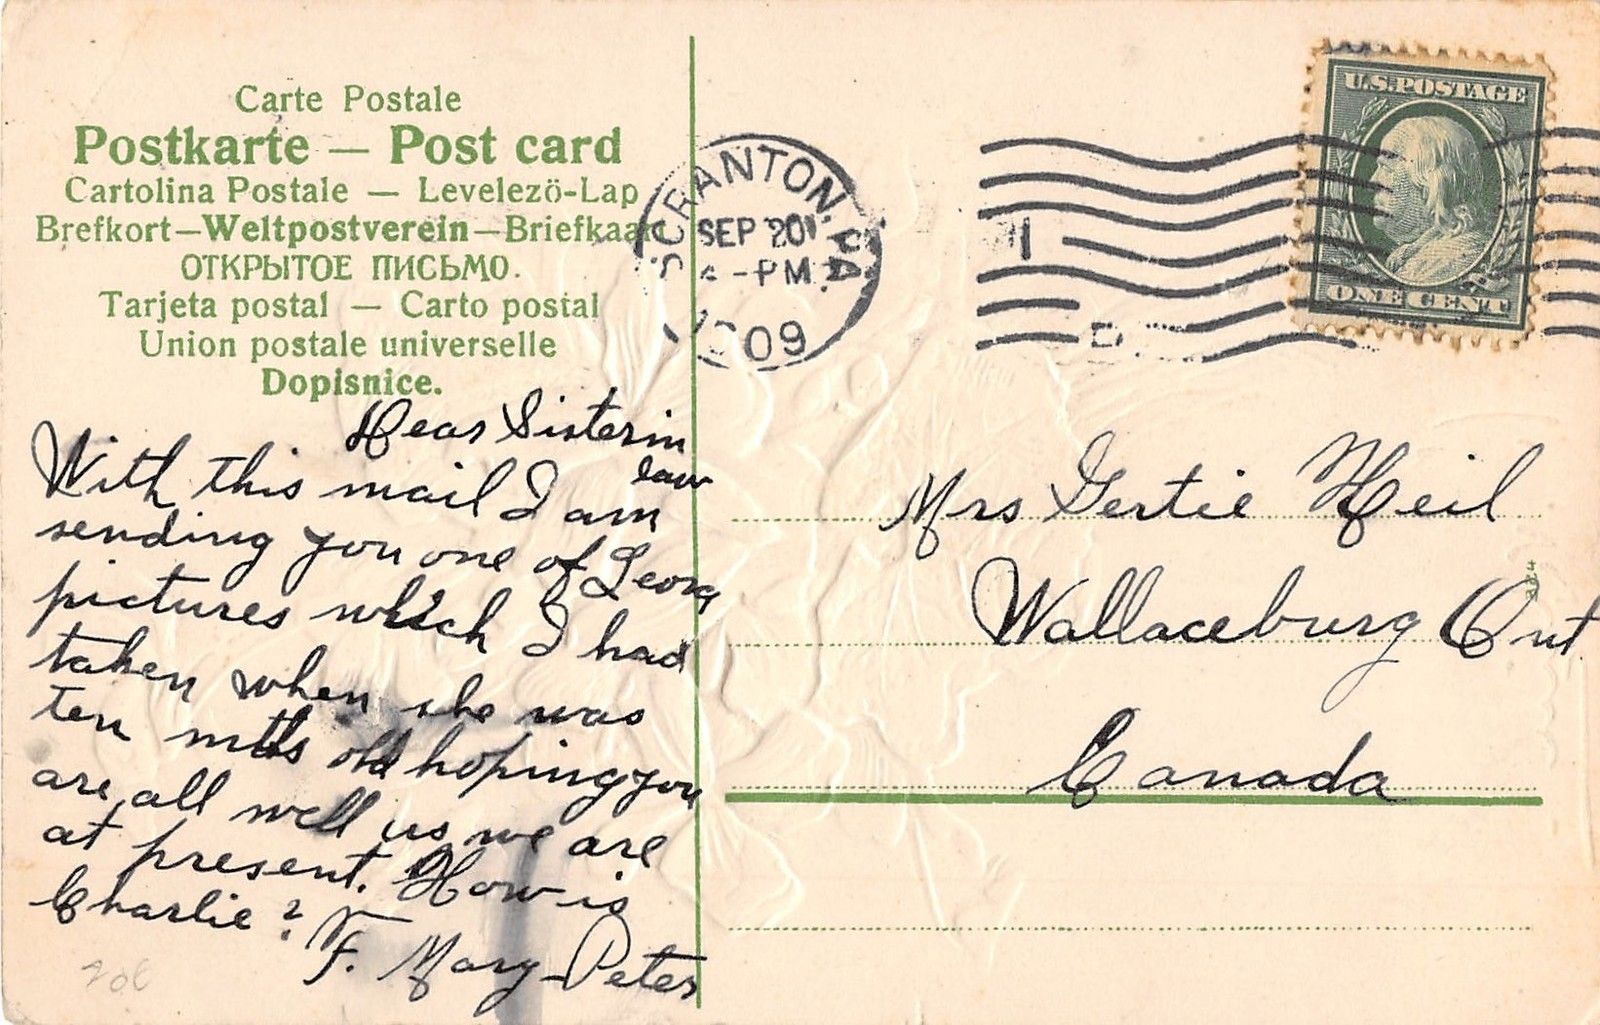 Carte Postale
Postkarte — Post card
Cartolina Postale — Levelezö-Lap
Brefkort—Weltpostverein—Briefkaart
ОТКРЫТОЕ ПИСЬМО.
Tarjeta postal — Carto postal
Union postale universelle
Dopisnice.
Dear Sisterin
law
With this mail I am
sending you one of
pictures which I had
taken when she was
ten mths old hoping you
are all well us we are
at present. How is
Charlie?
F. Mary-Peter
206
SCRANTON, PA.
SEP 20
-PM
1909
1
D
U.S. POSTAGE
ONE CENT
Mrs Gertie Heil
Wallaceburg Ont
Canada